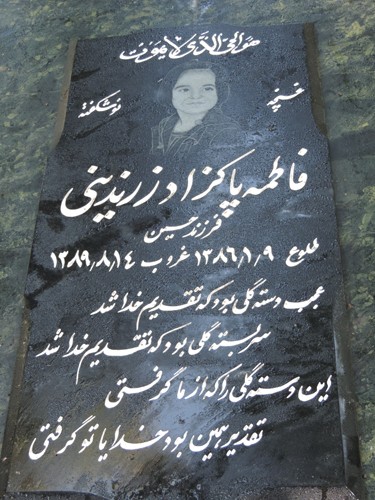 هوالحی الذی لا یموت
غنچه
نوشکفته
فاطمه پاکزاد زرندینی
فرزند حسین
طلوع ۱۳۸۶/۱/۹ غروب ۱۳۸۹/۸/۱۴
عجب دسته گلی بود که تقدیم خدا شد
سربسته گلی بود که تقدیم خدا شد
این دسته گلی را که از ما گرفتی
تقدیر همین بود خدایا تو گرفتی